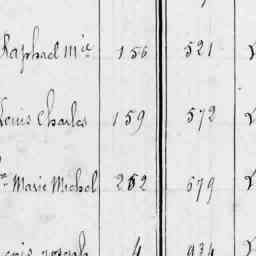 Raphael Mie 156 521
Louis Charles 159 572
Marie Michel 252 679
Joseph 934